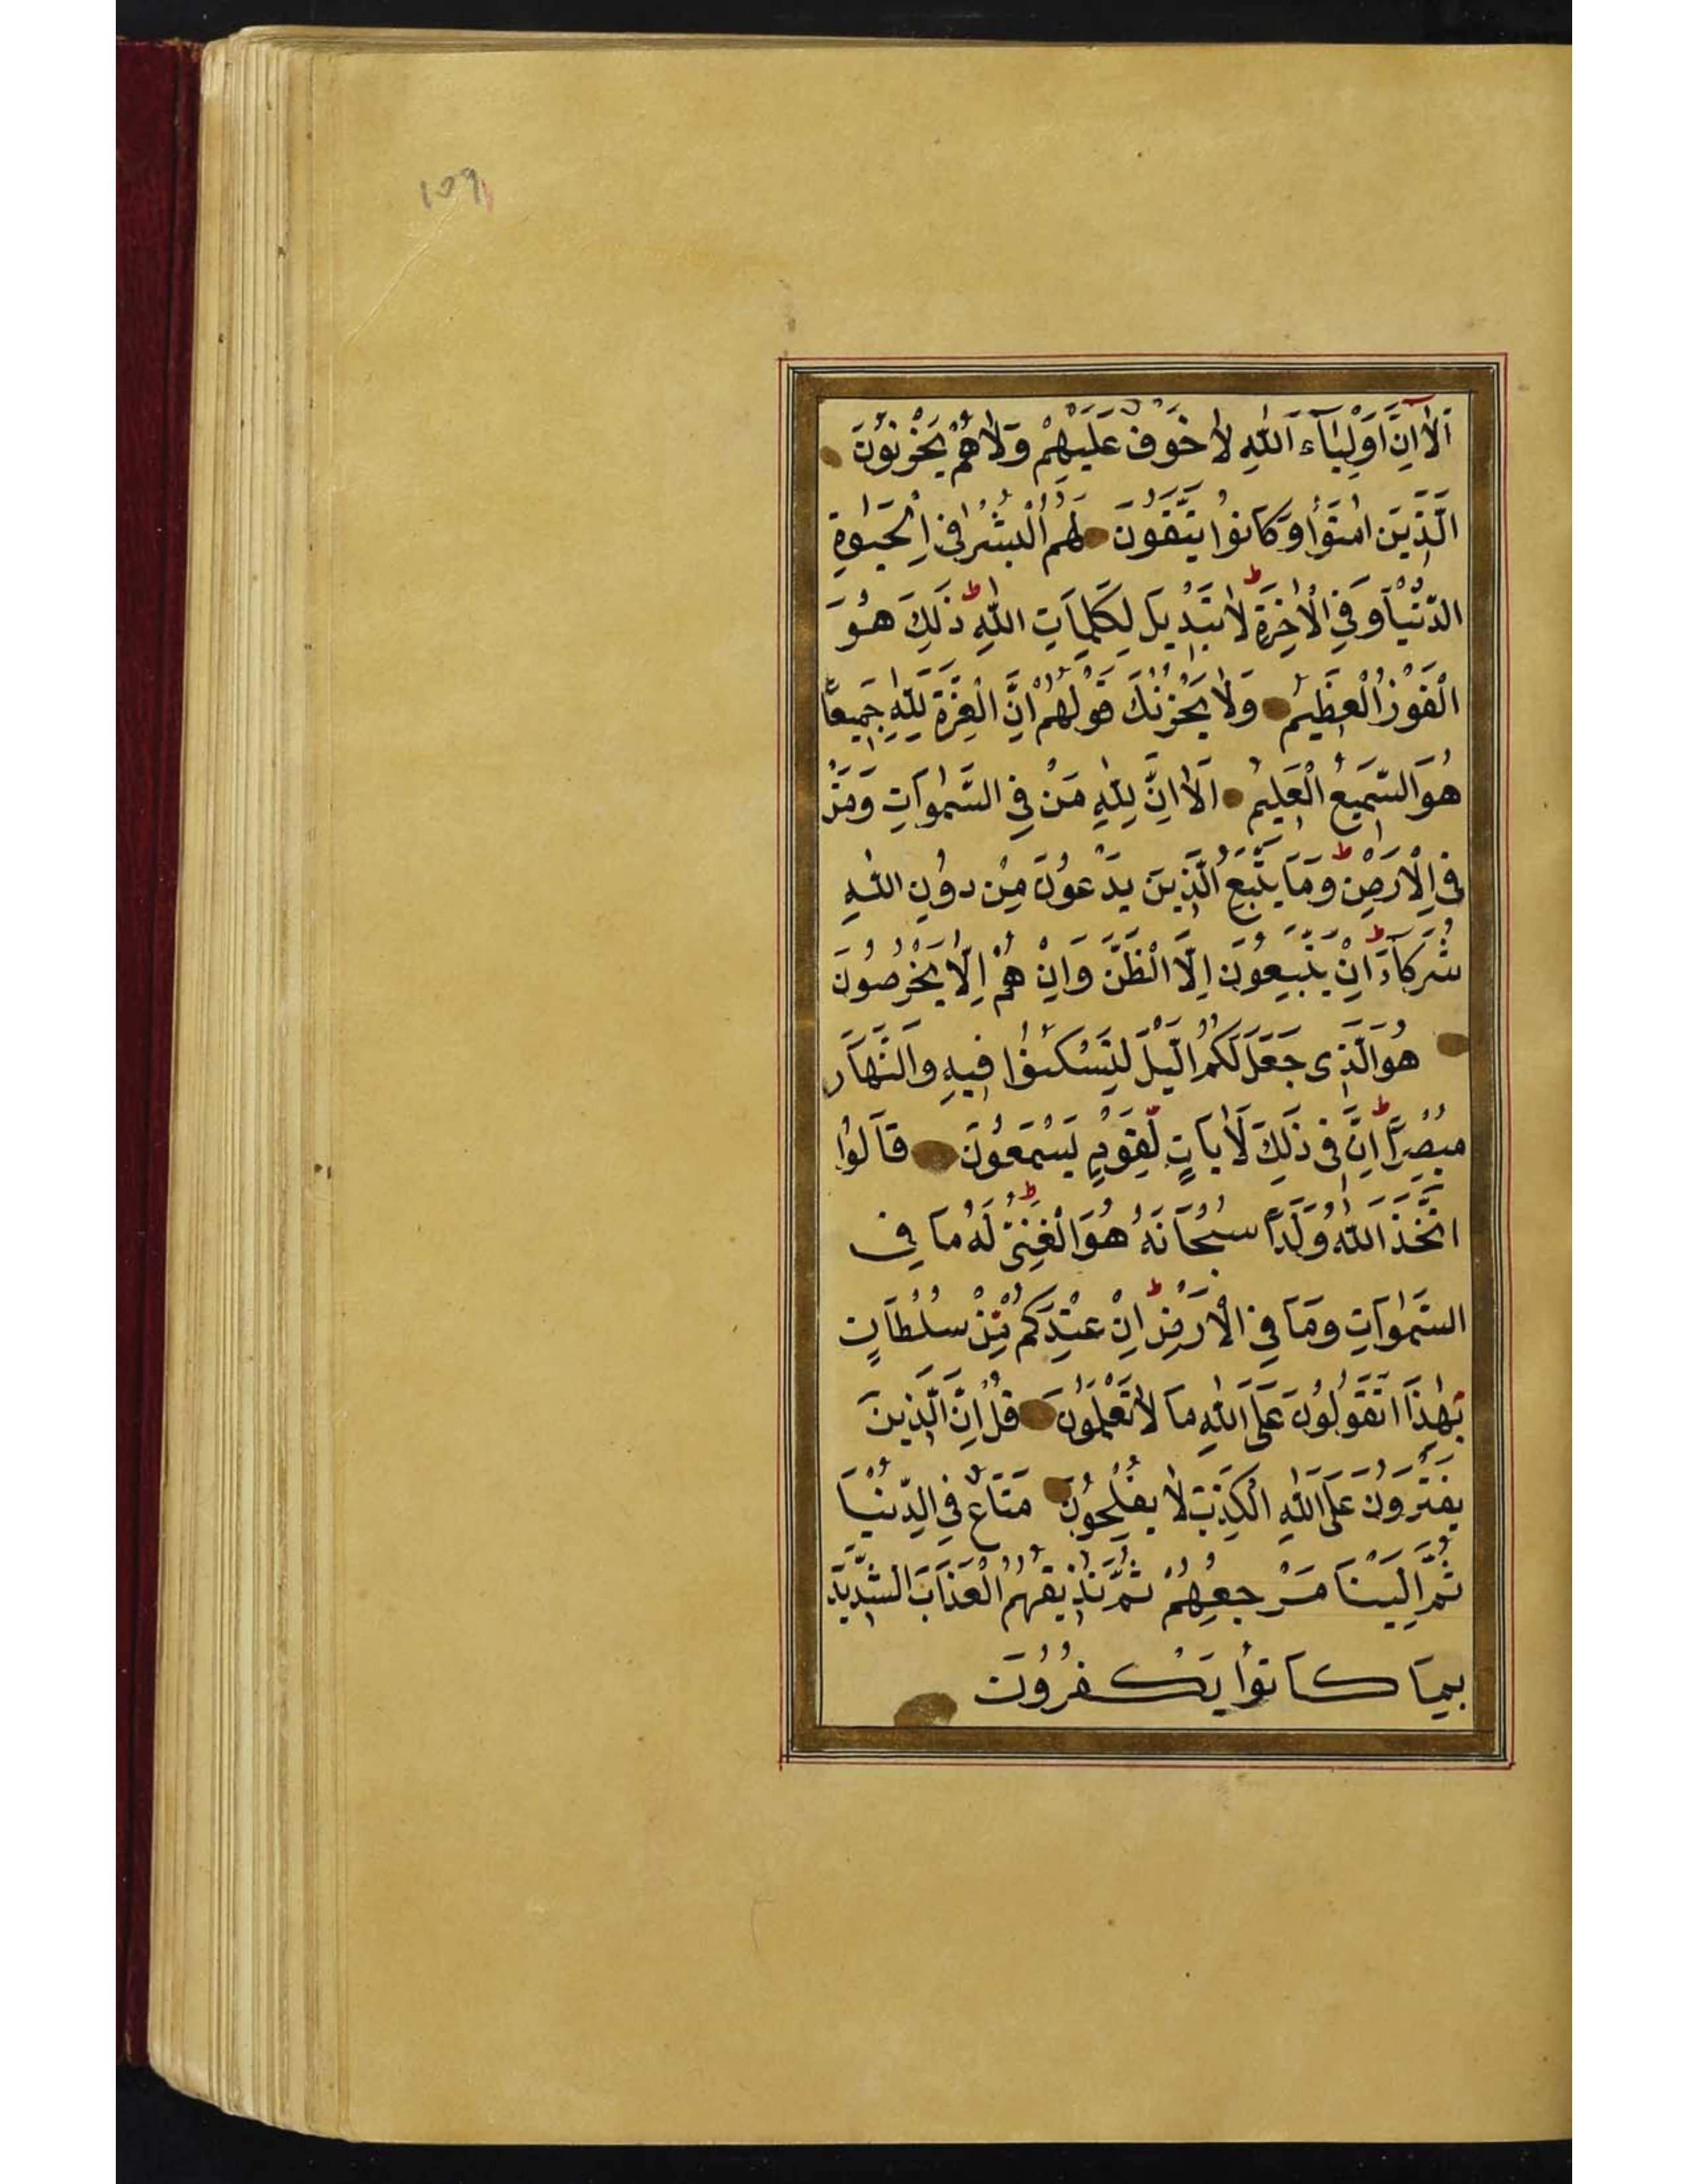 ١٥٩
اَلَآ اِنَّ اَوْلِيَآءَ اللّٰهِ لَا خَوْفٌ عَلَيْهِمْ وَلَا هُمْ يَحْزَنُوْنَ
الَّذِيْنَ اٰمَنُوْا وَكَانُوْا يَتَّقُوْنَ لَهُمُ الْبُشْرٰا فِى الْحَيٰوةِ
الدُّنْيَا وَفِى الْاٰخِرَةِ ط لَا تَبْدِيْلَ لِكَلِمَاتِ اللّٰهِ ط ذٰلِكَ هُوَ
الْفَوْزُ الْعَظِيْمُ وَلَا يَحْزُنْكَ قَوْلُهُمْ اِنَّ الْعِزَّةَ لِلّٰهِ جَمِيْعًا
هُوَ السَّمِيْعُ الْعَلِيْمُ اَلَا اِنَّ لِلّٰهِ مَنْ فِى السَّمٰوَاتِ وَمَنْ
فِى الْاَرْضِ ط وَمَا يَتَّبِعُ الَّذِيْنَ يَدْعُوْنَ مِنْ دُوْنِ اللّٰهِ
شُرَكَآءَ ط اِنْ يَتَّبِعُوْنَ اِلَّا الْظَّنَّ وَاِنْ هُمْ اِلَّا يَخْرُصُوْنَ
هُوَ الَّذِى جَعَلَ لَكُمُ الَّيْلَ لِتَسْكُنُوْا فِيْهِ وَالنَّهَارَ
مُبْصِرًا ط اِنَّ فِى ذٰلِكَ لَاٰيَاتٍ لِّقَوْمٍ يَسْمَعُوْنَ قَالُوْا
اتَّخَذَ اللّٰهُ وَلَدًا سُبْحَانَهُ ط هُوَ الْغَنِىُّ لَهُ مَا فِى
السَّمٰوَاتِ وَمَا فِى الْاَرْضِ ط اِنْ عِنْدَكُمْ مِّنْ سُلْطَانٍ
بِهٰذَا اَتَقُوْلُوْنَ عَلَى اللّٰهِ مَا لَا تَعْلَمُوْنَ قُلْ اِنَّ الَّذِيْنَ
يَفْتَرُوْنَ عَلَى اللّٰهِ الْكَذِبَ لَا يُفْلِحُوْنَ مَتَاعٌ فِى الدُّنْيَا
ثُمَّ اِلَيْنَا مَرْجِعُهُمْ ثُمَّ نُذِيْقُهُمُ الْعَذَابَ الشَّدِيْدَ
بِمَا كَانُوْا يَكْفُرُوْنَ